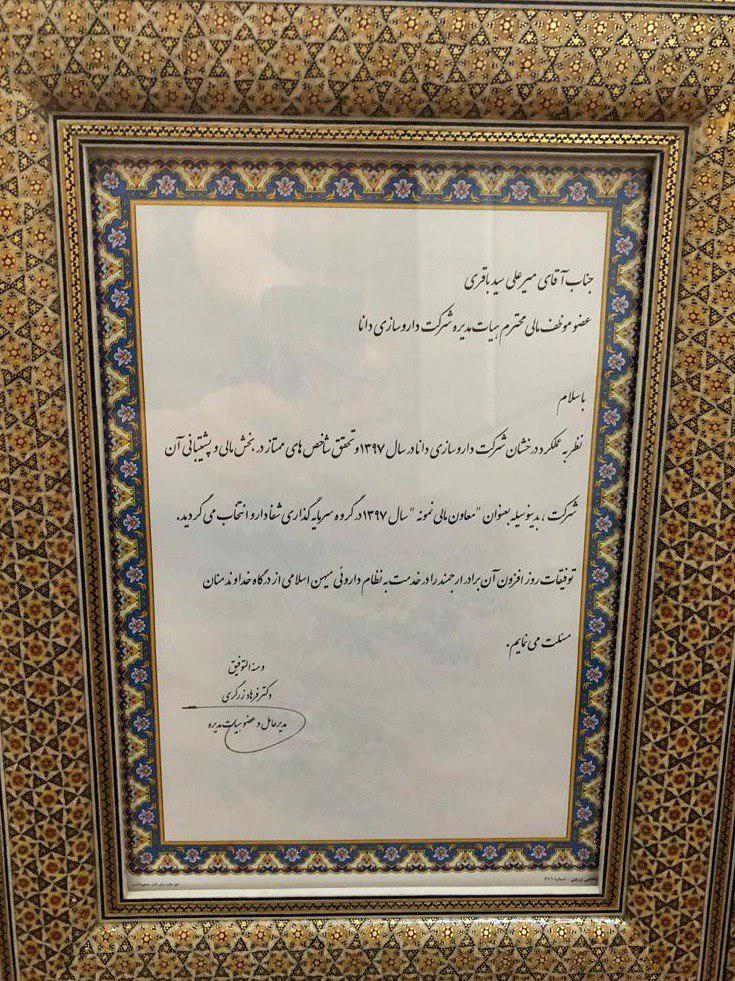 جناب آقای میرعلی سید باقری
عضو موظف مالی محترم هیات مدیره شرکت داروسازی دانا
باسلام
نظر به عملکرد درخشان شرکت داروسازی دانا در سال ۱۳۹۷ و تحقق شاخص های ممتاز در بخش مالی و پشتیبانی آن
شرکت ، بدینوسیله بعنوان "معاون مالی نمونه" سال ۱۳۹۷ در گروه سرمایه گذاری شفادارو انتخاب می گردید.
توفیقات روز افزون آن برادر ارجمند را در خدمت به نظام داروئی میهن اسلامی از درگاه خداوند منان
مسئلت می نمایم.
و منه التوفیق
دکتر فرهاد زرگری
مدیرعامل و عضو هیات مدیره